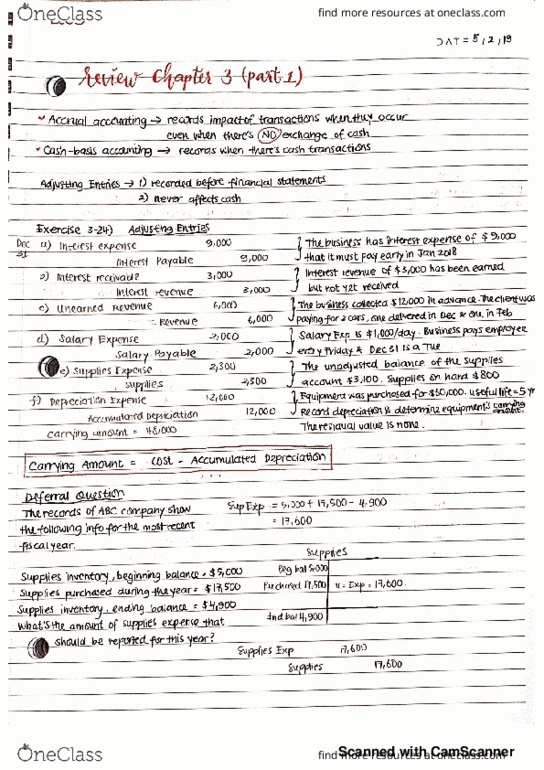 OneClass
find more resources at oneclass.com
DAT = 5/2/19
Review Chapter 3 (part 1)
Accrual accounting → records impact of transactions when they occur
even when there's NO exchange of cash
Cash-basis accounting → records when there's cash transactions
Adjusting Entries → 1) recorded before financial statements
2) never affects cash
Exercise 3-24) Adjusting Entries
Dec 31
a) Interest expense 9,000 The business has interest expense of $9,000
Interest Payable 9,000 that it must pay early in Jan 2018
2) Interest receivable 3,000 Interest revenue of $3,000 has been earned
Interest revenue 3,000 but not yet received
c) Unearned revenue 6,000 The business collected $12,000 in advance. The client was
Revenue 6,000 paying for 2 cars, one delivered in Dec & one in Feb
d) Salary Expense 2,000 Salary Exp is $1,000/day. Business pays employee
Salary Payable 2,000 every Friday & Dec 31 is a Tue
e) Supplies Expense 2,300 The unadjusted balance of the supplies
supplies 2,300 account $3,100. Supplies on hand $800
f) Depreciation Expense 12,000 Equipment was purchased for $60,000. useful life = 5 yr
Accumulated Depreciation 12,000 Record depreciation & determine equipment's carrying amount.
carrying amount = 48,000 The residual value is none.
Carrying Amount = COST - Accumulated Depreciation
Deferral Question
The records of ABC company show Sup Exp = 5,000 + 17,500 - 4,900
the following info for the most recent = 17,600
fiscal year.
Supplies
Supplies inventory, beginning balance = $5,000 Beg bal 5,000
Supplies purchased during the year = $17,500 Purchased 17,500 Exp = 17,600
Supplies inventory, ending balance = $4,900
What's the amount of supplies expense that End bal 4,900
should be reported for this year?
Supplies Exp 17,600
Supplies 17,600
OneClass
find more resources at oneclass.com
Scanned with CamScanner